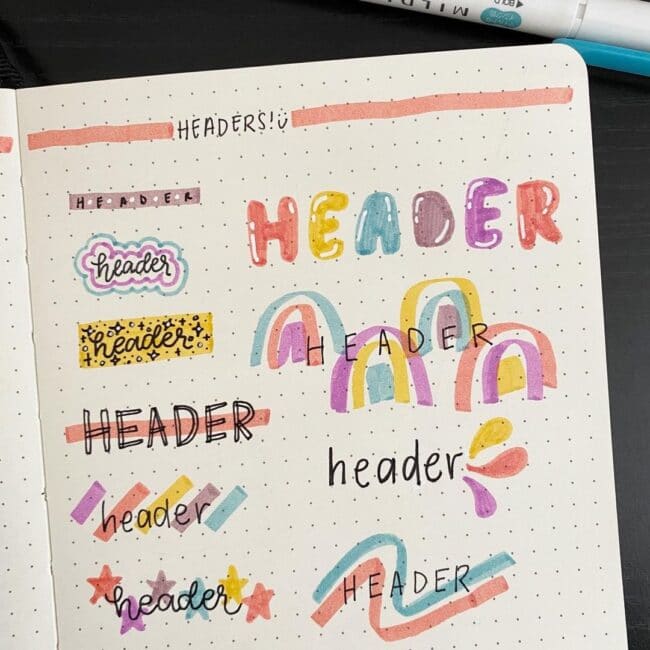 HEADERS!
HEADER
header
header
HEADER
header
header
HEADER
HEADER
header
HEADER